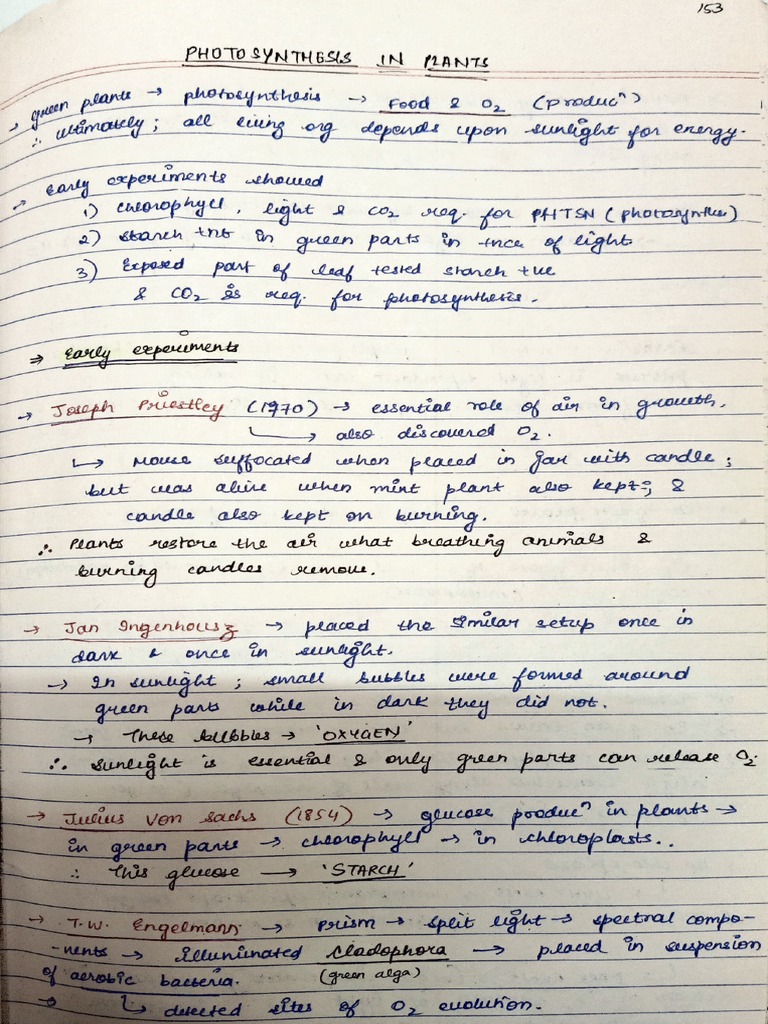 153
PHOTOSYNTHESIS IN PLANTS
→ green plants → photosynthesis → Food & O₂ (producⁿ)
∴ ultimately; all living org depends upon sunlight for energy.
→ Early experiments showed
1) chlorophyll, light & CO₂ req. for PHTSN (photosynthes)
2) starch tnt in green parts in tnce of light
3) Exposed part of leaf tested starch +ue
& CO₂ is req. for photosynthesis.
⇒ Early experiments
→ Joseph Priestley (1970) → essential role of air in growth,
→ also discovered O₂.
↳ Mouse suffocated when placed in jar with candle;
but was alive when mint plant also kept; &
candle also kept on burning.
∴ Plants restore the air what breathing animals &
burning candles remove.
→ Jan Ingenhousz → placed the similar setup once in
dark & once in sunlight.
→ In sunlight; small bubbles were formed around
green parts while in dark they did not.
→ These bubbles → 'OXYGEN'
∴ sunlight is essential & only green parts can release O₂
→ Julius Von Sachs (1854) → glucose producⁿ in plants →
in green parts → chlorophyll → in chloroplasts..
∴ This glucose → 'STARCH'
→ T.W. Engelmann → Prism → split light → spectral compo-
-nents → illuminated Cladophora → placed in suspension
of aerobic bacteria. (green alga)
→ ↳ detected sites of O₂ evolution.